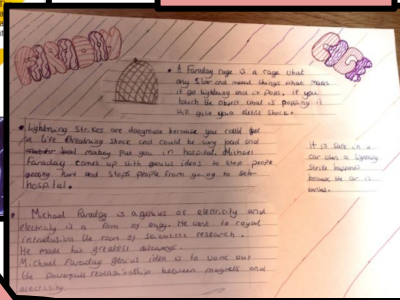 FARADAY CAGE
• A Faraday cage is a cage what
any and metal things what makes
it go lightning and it pops, if you
touch the object what is popping it
will give you a eletric shock.
• Lightning strikes are dangerous because you could get
a life threatening shock and could be very bad and
put you in hospital. Michael
Faraday comes up with genius ideas to stop people
getting hurt and stops people from going to
hospital.
It is safe in a
car when a lightning
strike happens
because the car is
• Michael Faraday is a genius of electricity and
electricity is a form of energy. He went to royal
the room of scientific research.
He made his greatest
Michael Faraday genius idea is to work out
the powerful relationship between magnets and
electricity.